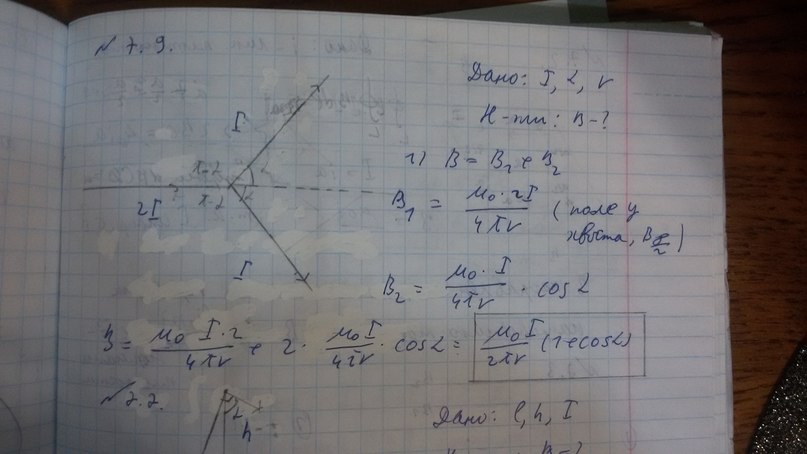 N 7.9.
Дано: I, α, r
Н-ти: B-?
I
1) B = B₁ + B₂
π-α α
2I π-α α
B₁ = μ₀·2I / 4πr (поле у
хвоста, B
I
B₂ = μ₀·I / 4πr · cos α
B = μ₀ I·2 / 4πr + 2 · μ₀I / 4πr · cos α = μ₀I / 2πr (1+cos α)
N 7.7.
h
Дано: l, h, I
B-?